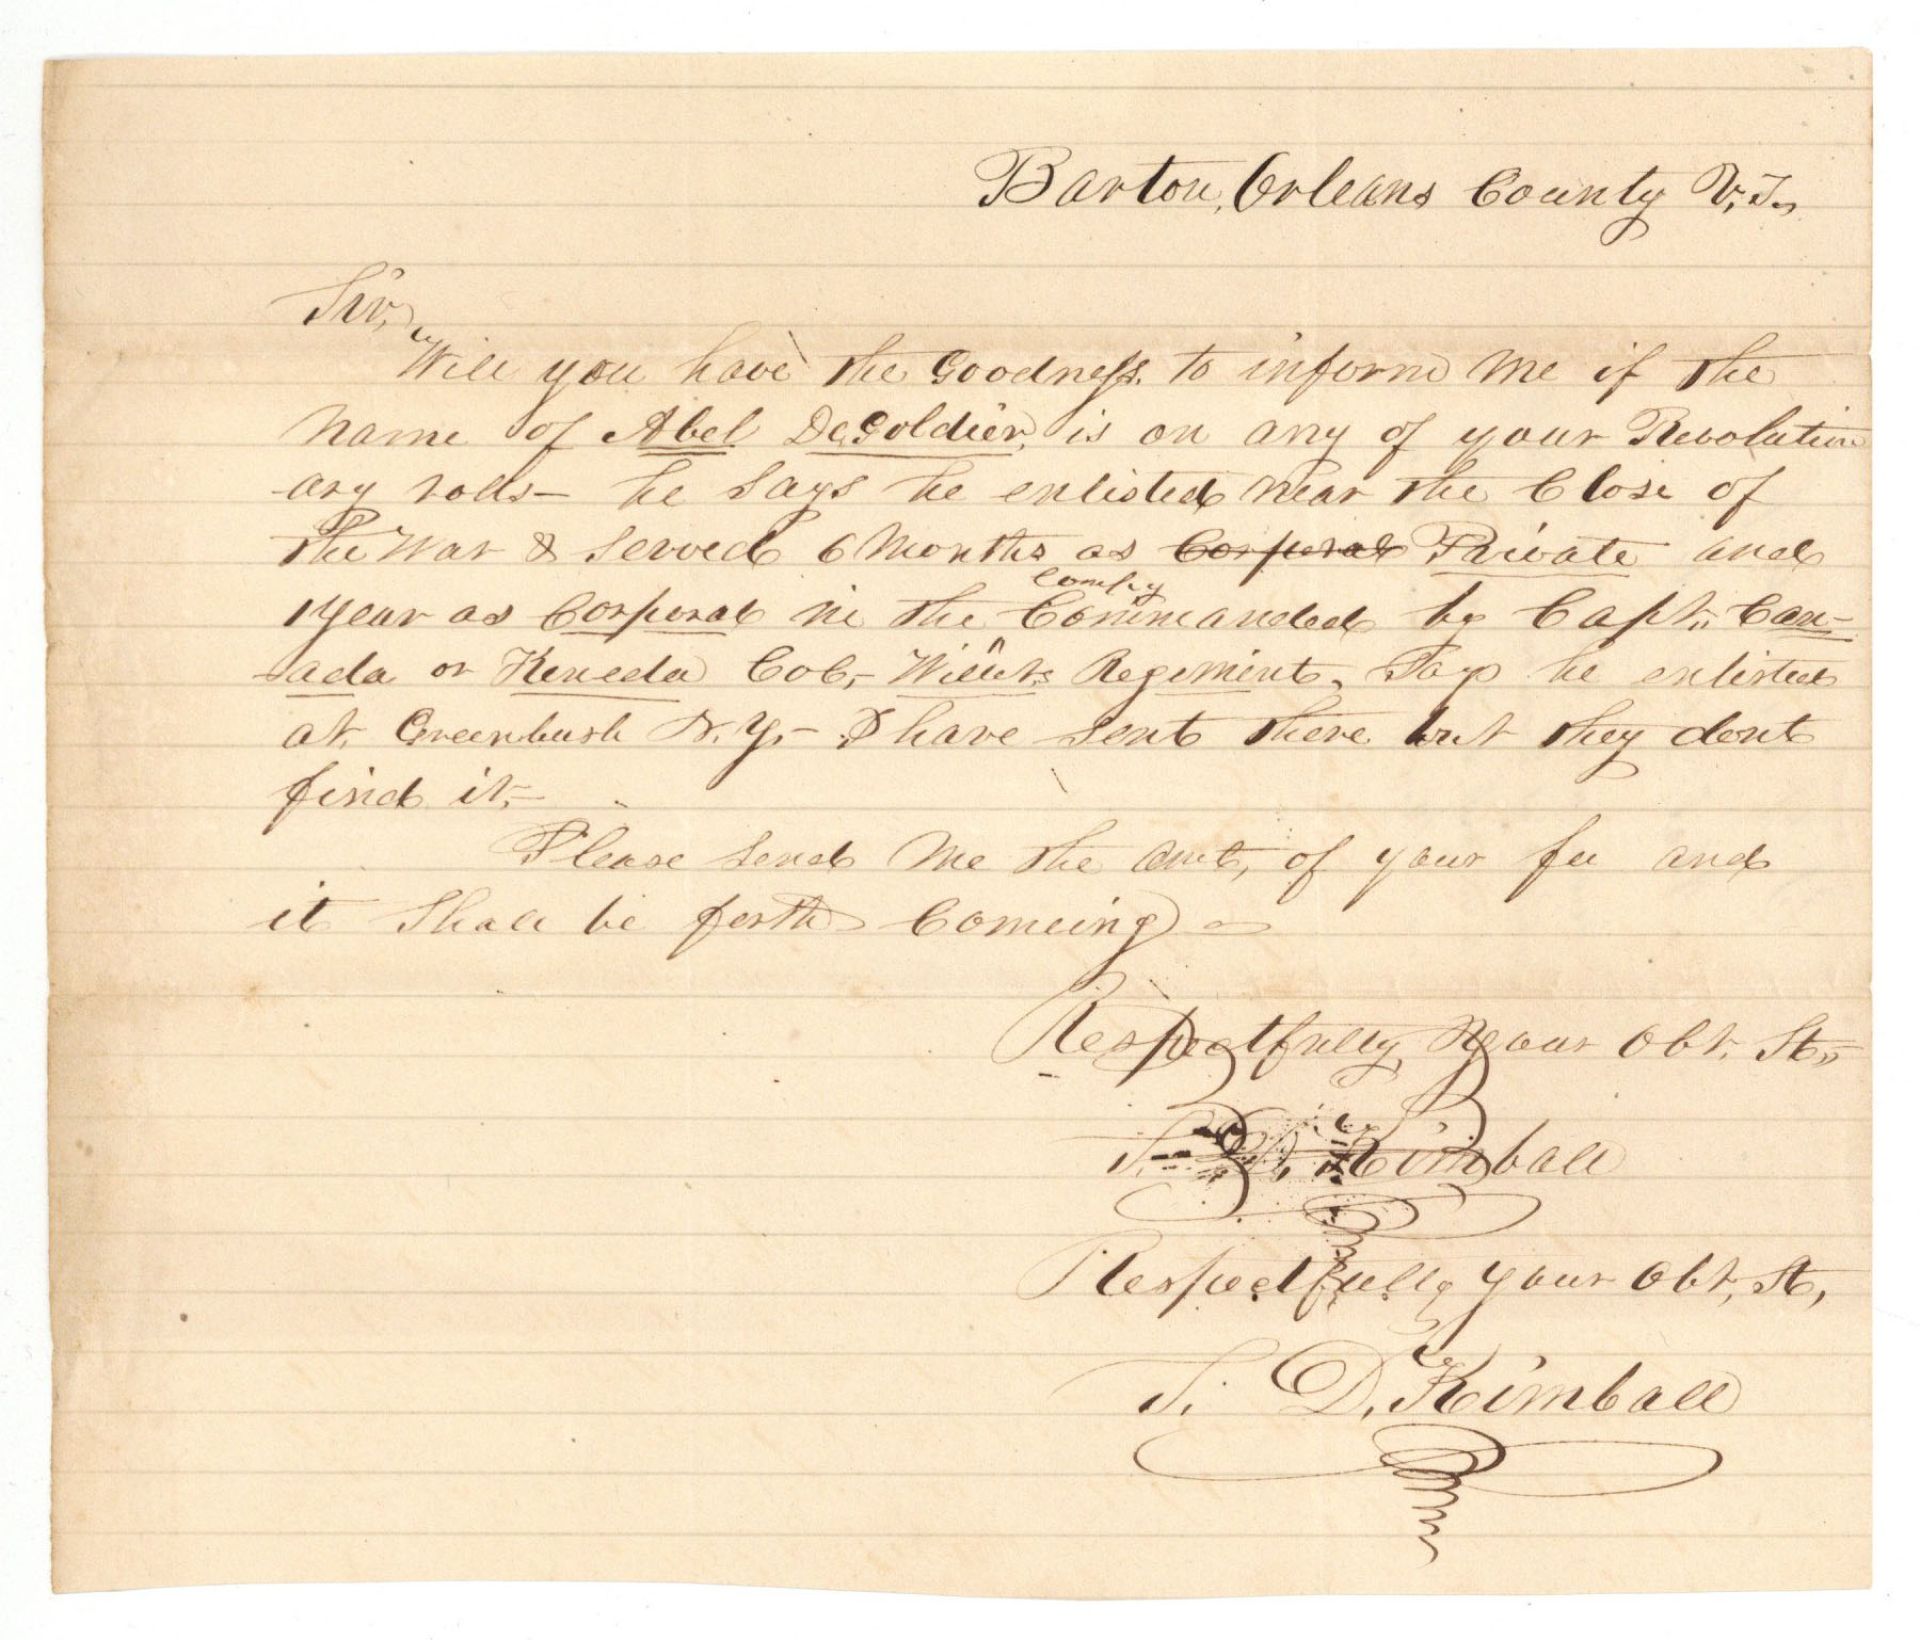 Barton, Orleans County V.T.
Sir,
Will you have the Goodness to inform me if the
name of Abel DeGoldier, is on any of your Revolution
ary rolls— he says he enlisted near the Close of
the War & Served 6 Months as Corporal Private and
1 year as Corporal in the Comp'y Commanded by Capt. Can-
ada or Keneda Col,- Regiment, Says he enlisted
at Greenbush N.Y.— I have sent there but they dont
find it.—
Please send me the amt, of your fee and
it Shall be forth Comeing—
Respectfully, your Obt. St.,
Kimball
Respectfully your Obt, St,
T. D. Kimball